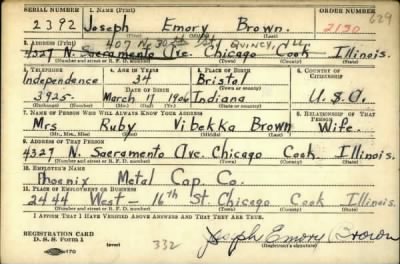 SERIAL NUMBER 1. NAME (Print) ORDER NUMBER
2392 Joseph Emory Brown. 2150 629
(First) (Middle) (Last)
407 N. 30th St. QUINCY, ILL
2. ADDRESS (Print)
4327 N. Sacramento Ave. Chicago Cook Illinois.
(Number and street or R. F. D. number) (Town) (County) (State)
3. TELEPHONE 4. AGE IN YEARS 5. PLACE OF BIRTH 6. COUNTRY OF CITIZENSHIP
Independence 34 Bristol
DATE OF BIRTH (Town or county)
3925. March 17 1906 Indiana U.S.A.
(Exchange) (Number) (Mo.) (Day) (Yr.) (State or country)
7. NAME OF PERSON WHO WILL ALWAYS KNOW YOUR ADDRESS 8. RELATIONSHIP OF THAT PERSON
Mrs Ruby Vibekka Brown Wife.
(Mr., Mrs., Miss) (First) (Middle) (Last)
9. ADDRESS OF THAT PERSON
4327 N. Sacramento Ave. Chicago Cook. Illinois.
(Number and street or R. F. D. number) (Town) (County) (State)
10. EMPLOYER'S NAME
Phoenix Metal Cap. Co.
11. PLACE OF EMPLOYMENT OR BUSINESS
2444 West - 16th St. Chicago Cook Illinois.
(Number and street or R. F. D. number) (Town) (County) (State)
I AFFIRM THAT I HAVE VERIFIED ABOVE ANSWERS AND THAT THEY ARE TRUE.
REGISTRATION CARD
D. S. S. Form 1 332 Joseph Emory Brown
(Registrant's signature)